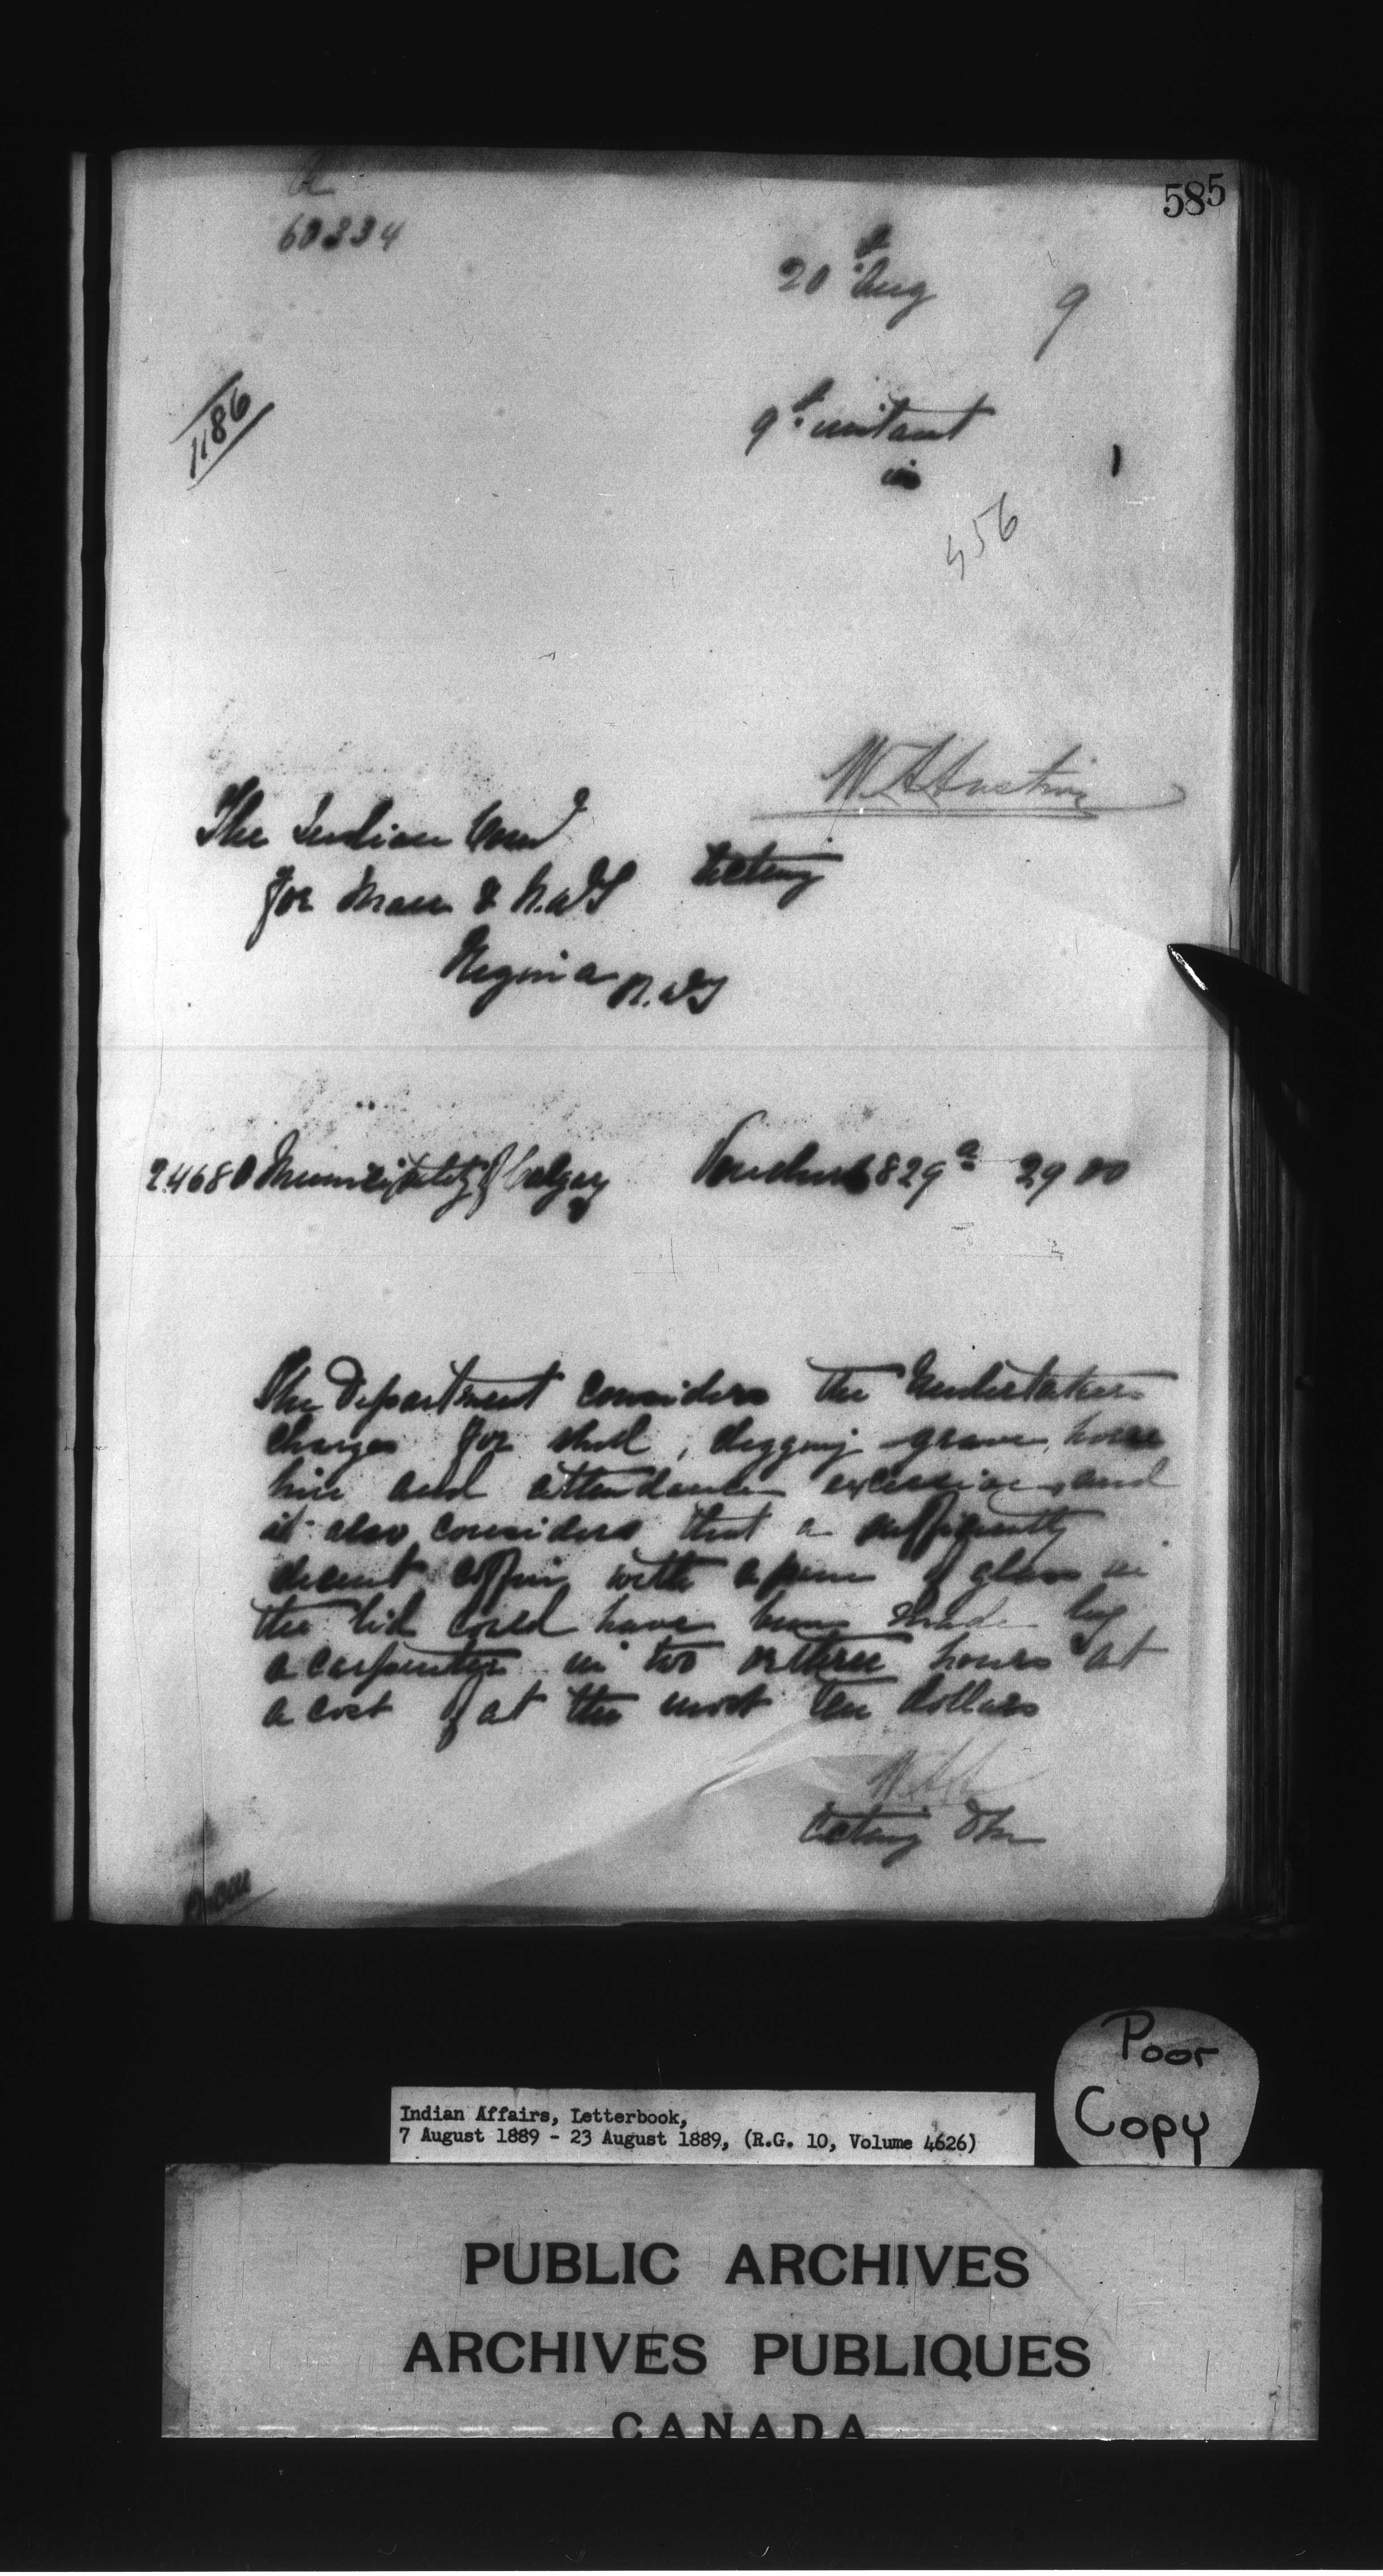 585
60334
20th Aug 9
1186
9th instant
in
1
456
W A Austin
The Indian Com
for Man & N.W.T
Acting
Regina N.W.T
24680 Municipality of Calgary Voucher 829a 29 00
The Department considers the Undertakers
charges for digging grave, horse
hire and attendance excessive and
it also considers that a sufficiently
decent coffin with a pane of glass in
the lid could have been made by
a carpenter in two or three hours at
a cost of at the most ten dollars
Acting
Poor
Copy
Indian Affairs, Letterbook,
7 August 1889 - 23 August 1889, (R.G. 10, Volume 4626)
PUBLIC ARCHIVES
ARCHIVES PUBLIQUES
CANADA